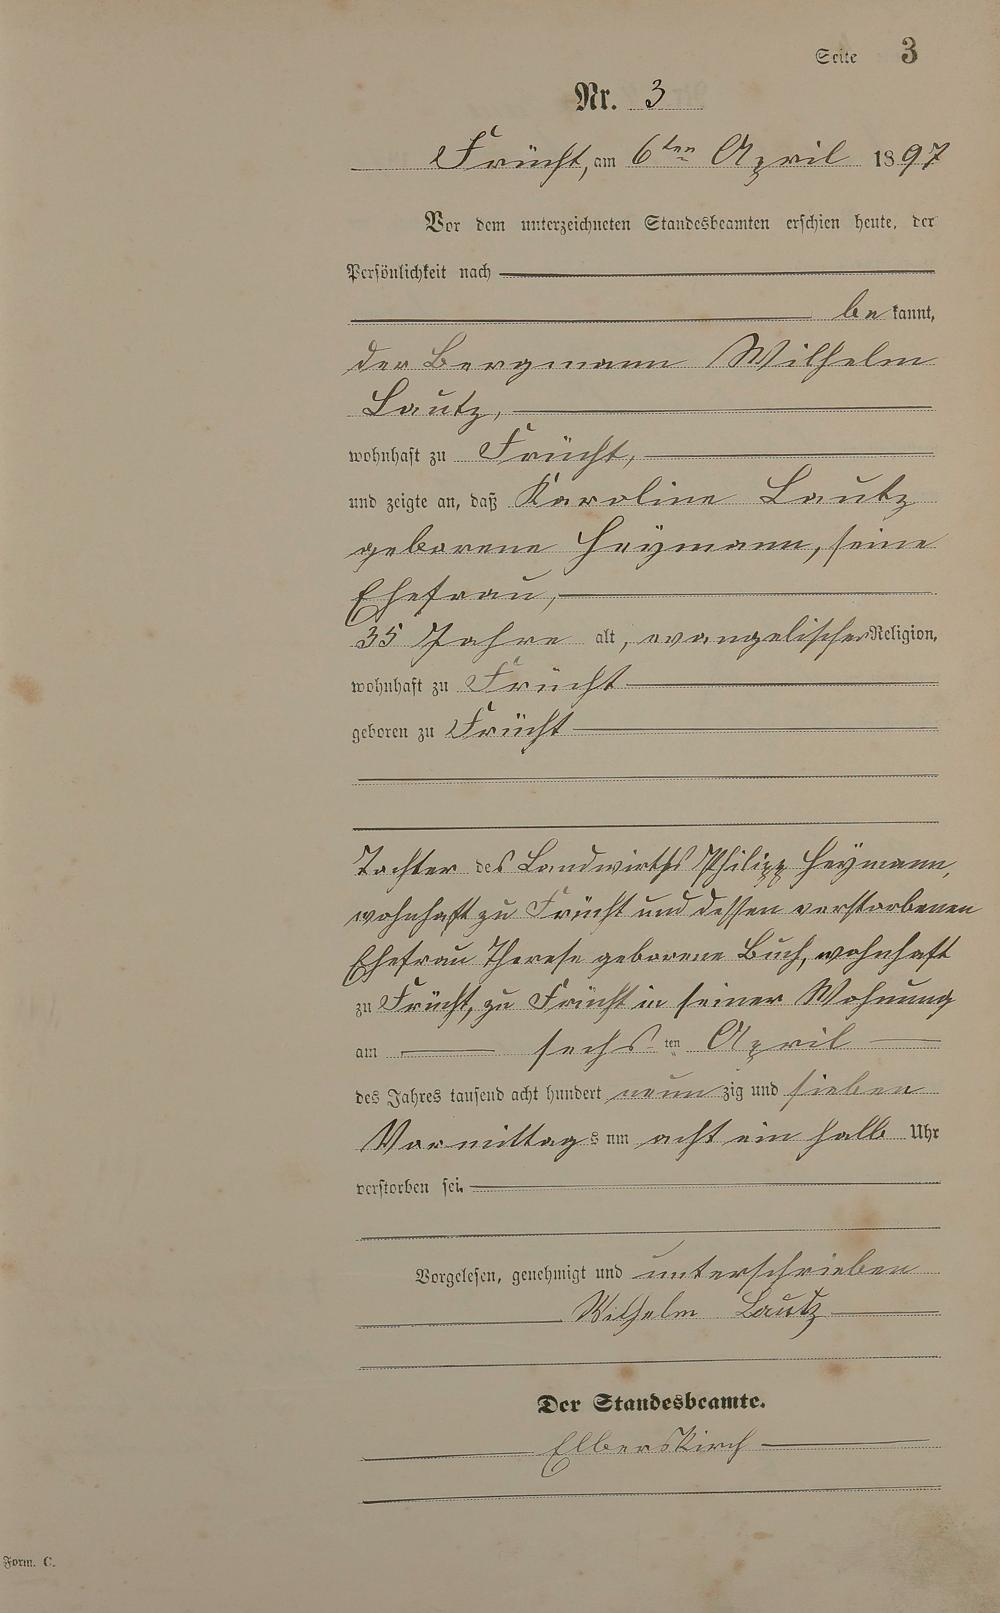 Seite 3
Nr. 3
Frücht, am 6ten April 1897
Vor dem unterzeichneten Standesbeamten erschien heute, der
Persönlichkeit nach
be kannt,
der Bergmann Wilhelm
Lautz,
wohnhaft zu Frücht,
und zeigte an, daß Karoline Lautz
geborene Heymann, seine
Ehefrau,
35 Jahre alt, evangelischer Religion,
wohnhaft zu Frücht
geboren zu Frücht
Tochter des Landwirths Philipp Heymann,
wohnhaft zu Frücht und dessen verstorbenen
Ehefrau Therese geborene Buch, wohnhaft
zu Frücht, zu Frücht in seiner Wohnung
am sechs ten April
des Jahres tausend acht hundert neun zig und sieben
Vormittags um acht ein halb Uhr
verstorben sei.
Vorgelesen, genehmigt und unterschrieben
Wilhelm Lautz
Der Standesbeamte.
Elberskirch
Form. C.